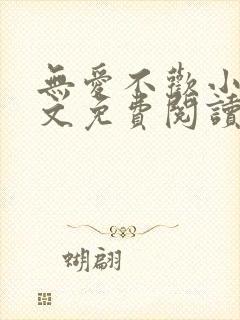 無愛不歡小
文免費閱讀
蝴翩